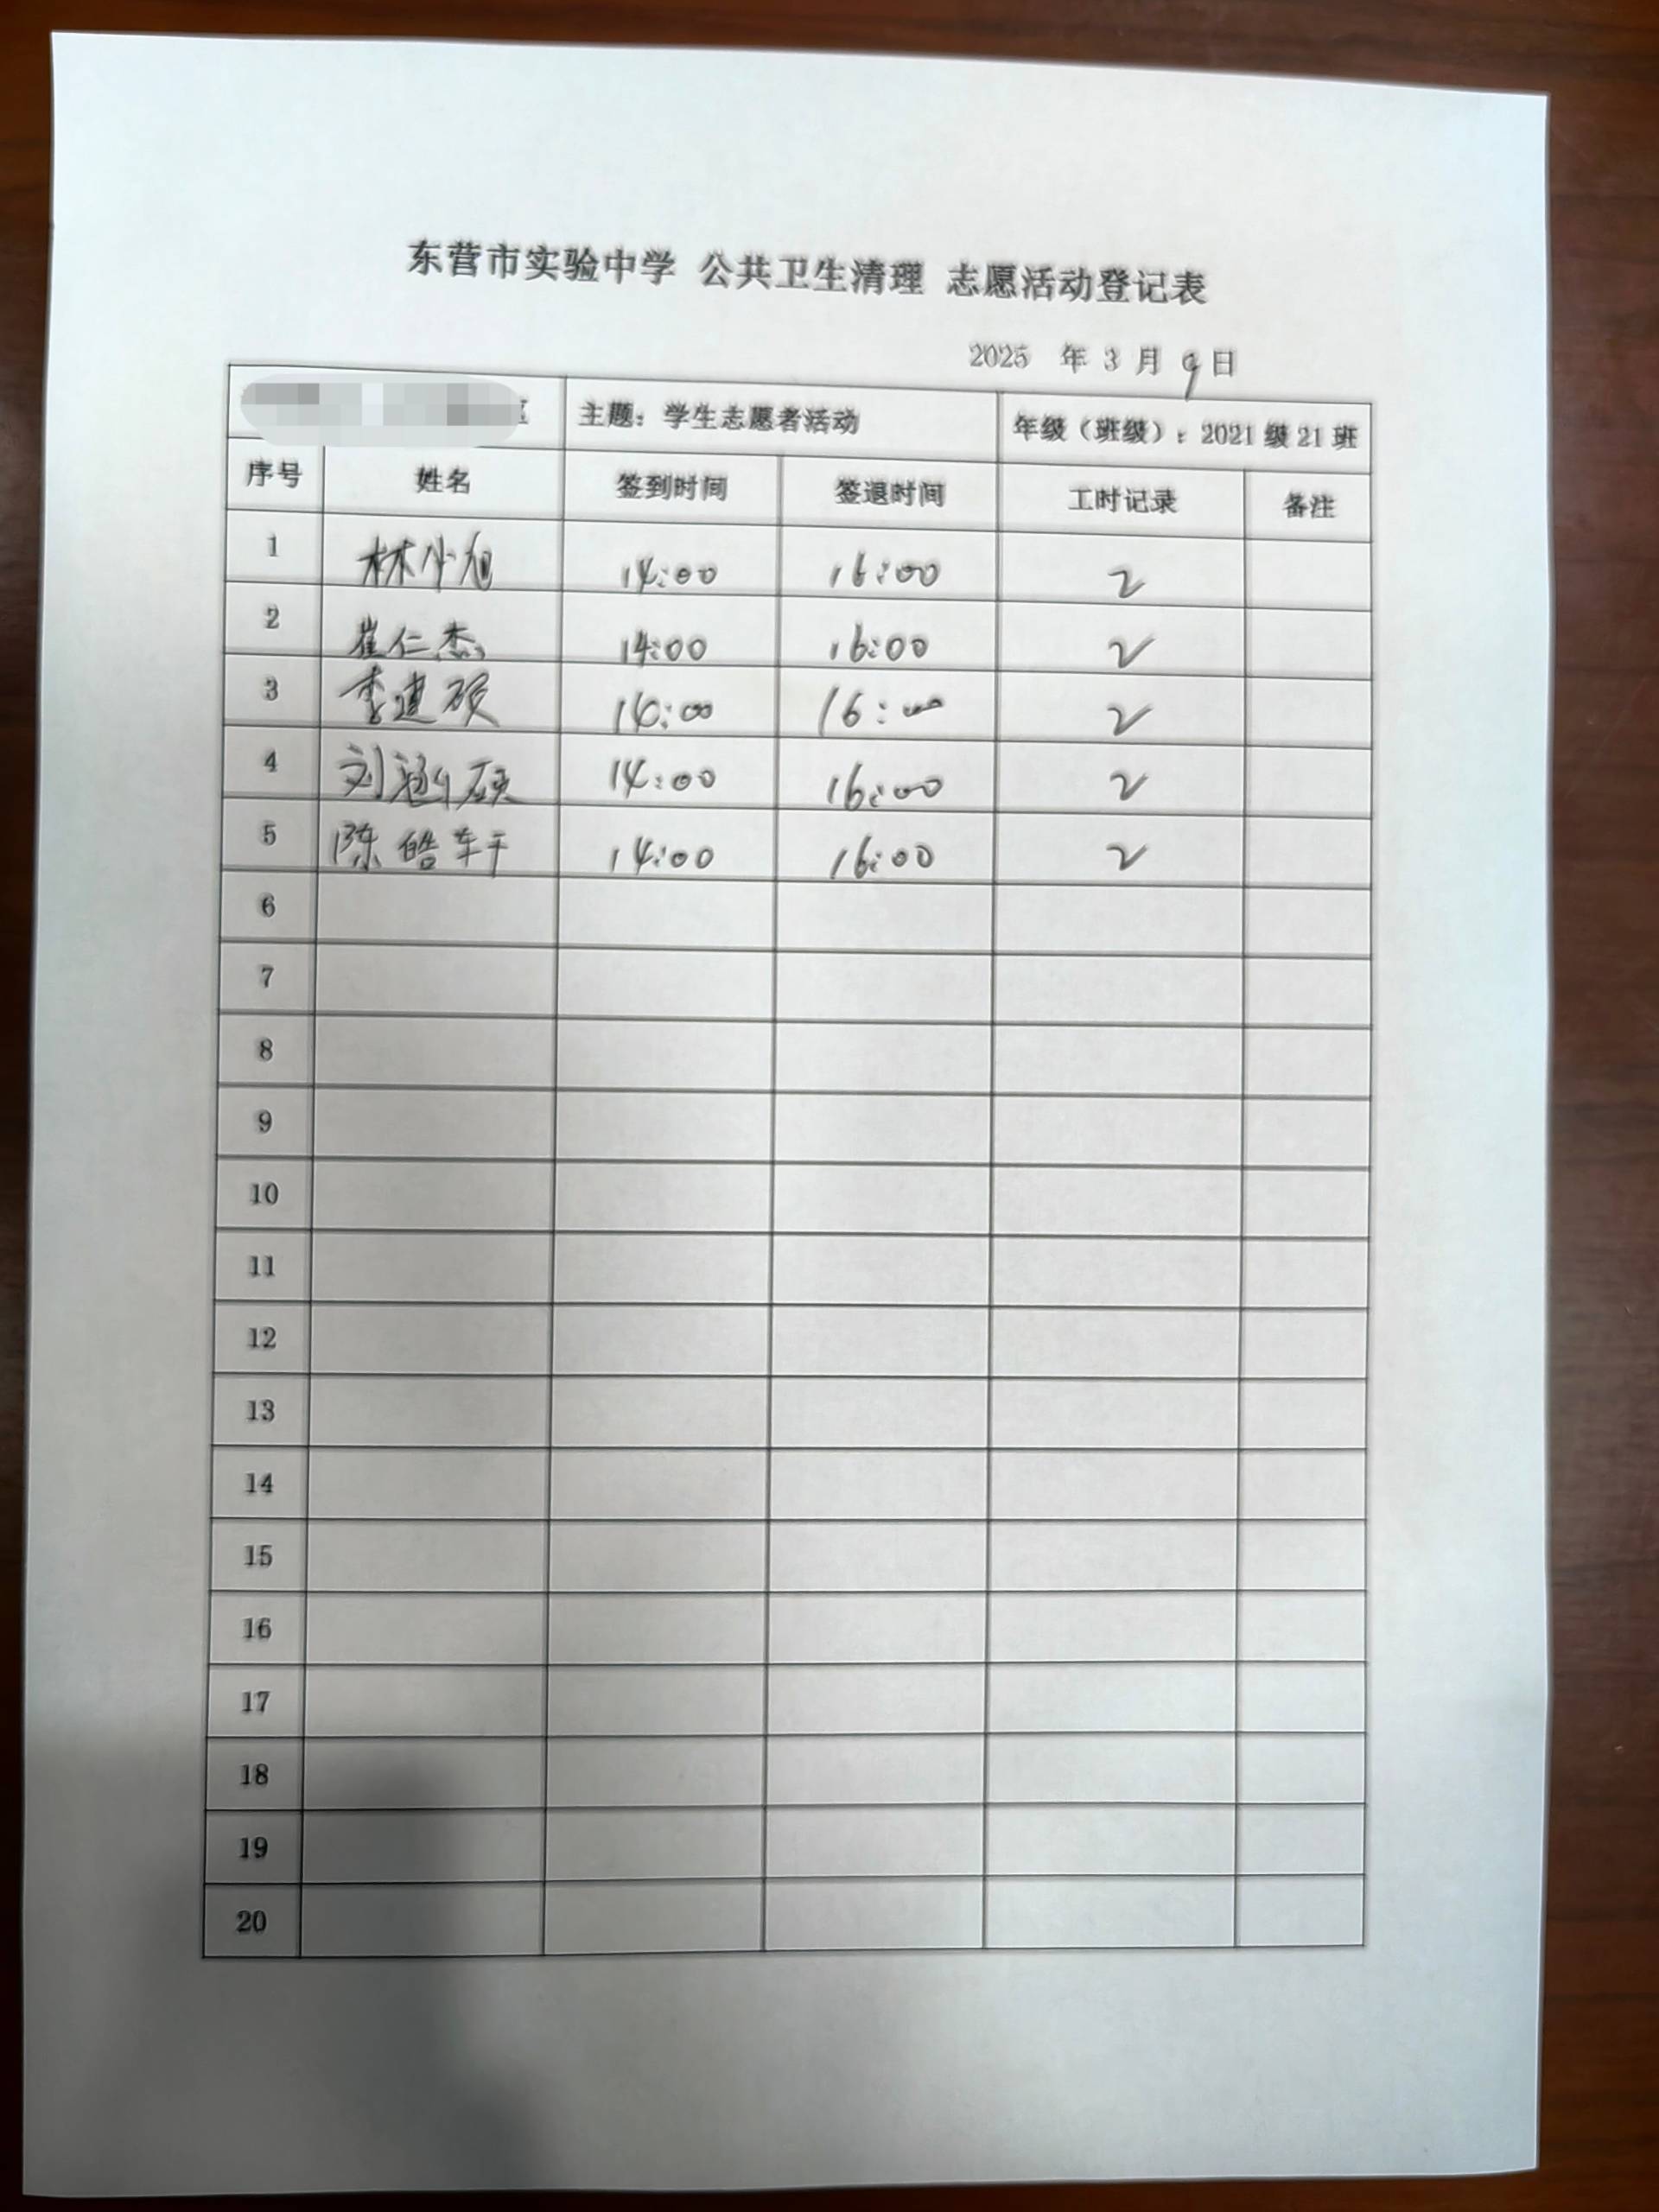 东营市实验中学 公共卫生清理 志愿活动登记表
2025 年 3 月 9 日
区 主题：学生志愿者活动 年级（班级）：2021 级 21 班
序号 姓名 签到时间 签退时间 工时记录 备注
1 林小旭 14:00 16:00 2
2 崔仁杰 14:00 16:00 2
3 李建硕 14:00 16:00 2
4 刘涵硕 14:00 16:00 2
5 陈皓轩 14:00 16:00 2
6
7
8
9
10
11
12
13
14
15
16
17
18
19
20